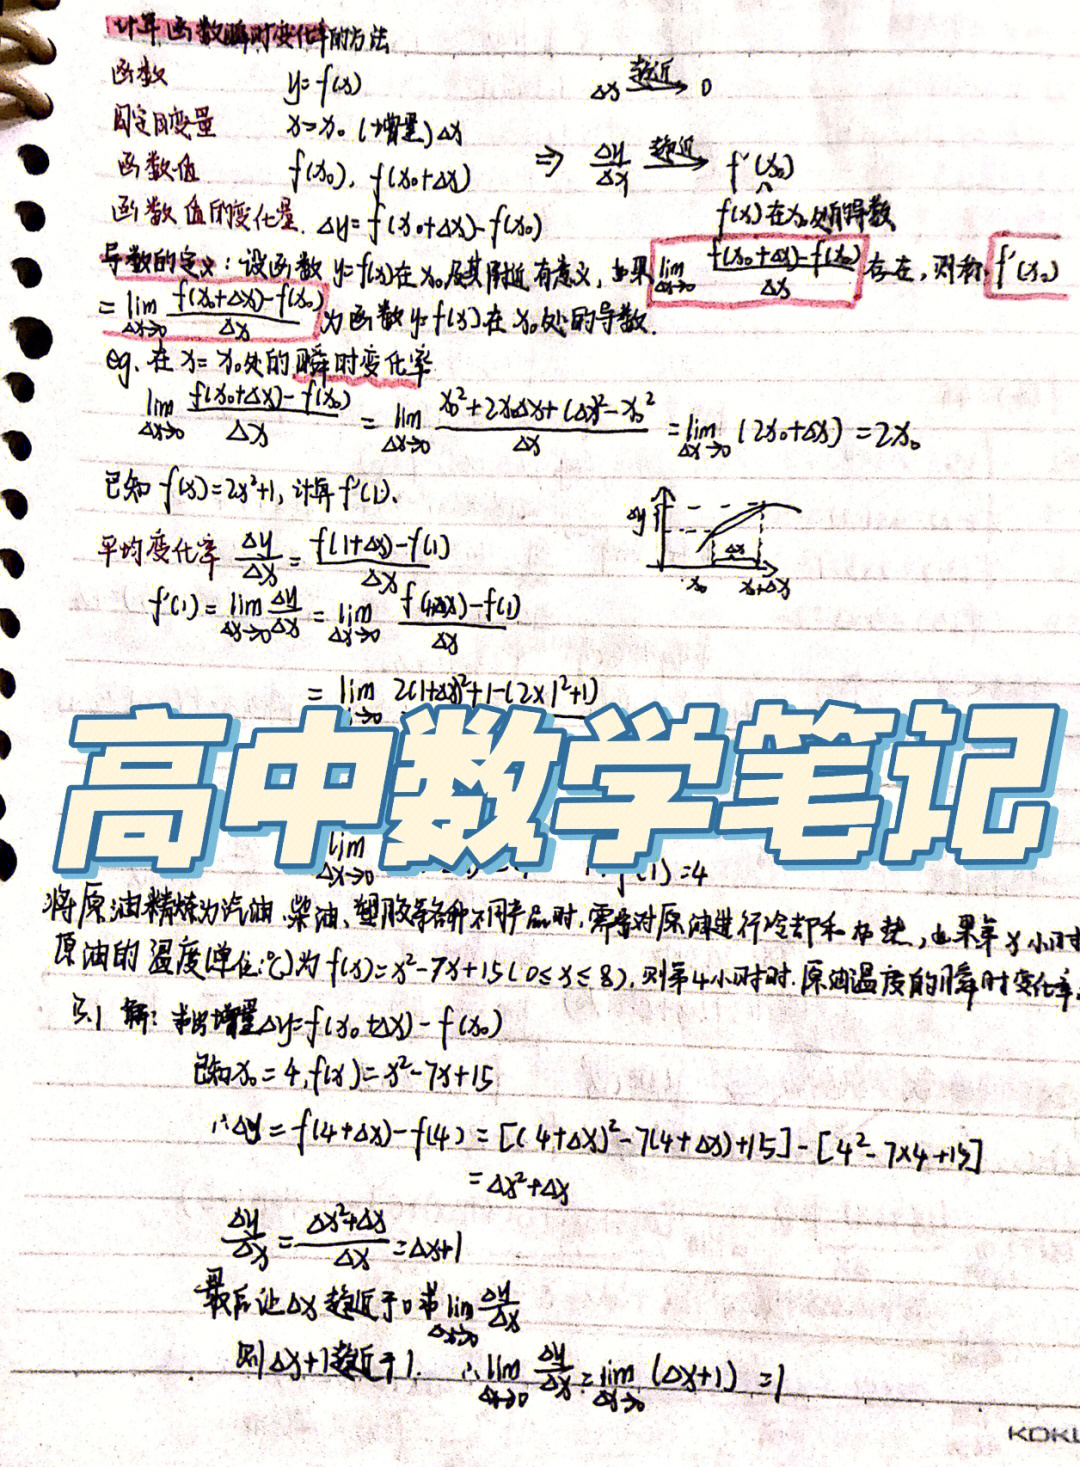 计算函数瞬时变化率的方法
函数 y=f(x) Δx 趋近→ 0
固定自变量 x=x₀ (+增量)Δx
函数值 f(x₀), f(x₀+Δx) ⇒ Δy/Δx 趋近→ f'(x₀)
函数值的变化量. Δy=f(x₀+Δx)-f(x₀) f(x)在x₀处的导数
导数的定义:设函数 y=f(x)在x₀及其附近有意义,如果 lim Δx→0 (f(x₀+Δx)-f(x₀))/Δx 存在,则称 f'(x₀)
= lim Δx→0 (f(x₀+Δx)-f(x₀))/Δx 为函数y=f(x)在x₀处的导数.
eg. 在x=x₀处的瞬时变化率
lim Δx→0 (f(x₀+Δx)-f(x₀))/Δx = lim Δx→0 (x₀²+2x₀Δx+(Δx)²-x₀²)/Δx = lim Δx→0 (2x₀+Δx) = 2x₀
已知 f(x)=2x²+1, 计算 f'(1).
Δy Δx x₀ x₀+Δx
平均变化率 Δy/Δx = (f(1+Δx)-f(1))/Δx
f'(1) = lim Δx→0 Δy/Δx = lim Δx→0 (f(1+Δx)-f(1))/Δx
= lim Δx→0 2(1+Δx)²+1-(2×1²+1)
高中数学笔记
lim Δx→0 (1)=4
将原油精炼为汽油、柴油、塑胶等各种不同产品时,需要对原油进行冷却和加热,如果第x小时
原油的温度(单位:℃)为 f(x)=x²-7x+15(0≤x≤8),则第4小时时.原油温度的瞬时变化率.
解: 求出增量Δy=f(x₀+Δx)-f(x₀)
已知x₀=4,f(x)=x²-7x+15
∴Δy=f(4+Δx)-f(4)=[(4+Δx)²-7(4+Δx)+15]-[4²-7×4+15]
=Δx²+Δx
Δy/Δx = (Δx²+Δx)/Δx = Δx+1
最后让Δx趋近于0求 lim Δx→0 Δy/Δx
则Δx+1趋近于1. ∴ lim Δx→0 Δy/Δx = lim Δx→0 (Δx+1) =1